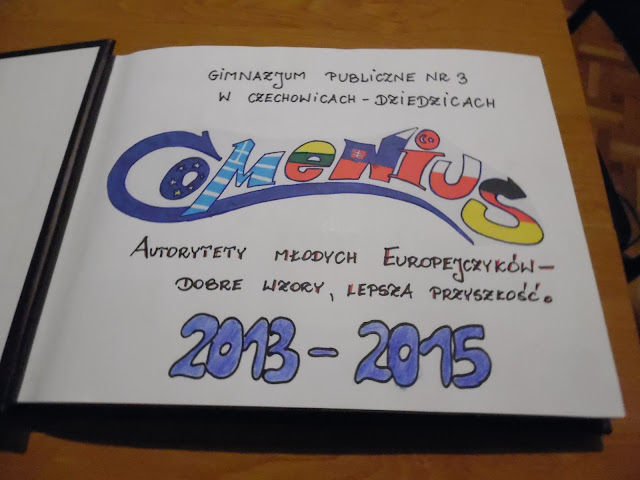 GIMNAZJUM PUBLICZNE NR 3
W CZECHOWICACH-DZIEDZICACH
COMENIUS
AUTORYTETY MŁODYCH EUROPEJCZYKÓW–
DOBRE WZORY, LEPSZA PRZYSZŁOŚĆ.
2013-2015